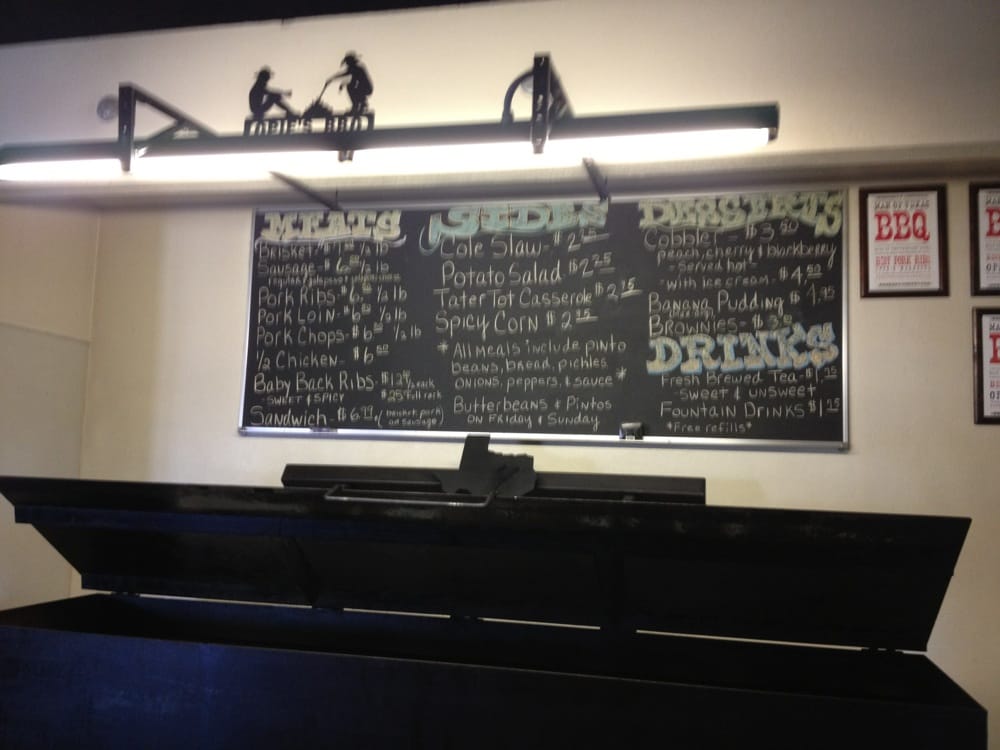 OPIE'S BBQ
MEATS
Brisket- ½ lb
Sausage- $6 ½ lb
Pork Ribs- $6 ½ lb
Pork Loin- $6 ½ lb
Pork Chops- $6 ½ lb
½ Chicken- $6 50
Baby Back Ribs- ½ rack
-SWEET & SPICY $25 Full rack
Sandwich- $6. (brisket, pork or sausage)
SIDES
Cole Slaw- $2 25
Potato Salad $2 25
Tater Tot Casserole $2.25
Spicy Corn $2 25
*All meals include pinto
beans, bread, pickles
onions, peppers, & sauce*
Butterbeans & Pintos
ON FRIDAY & SUNDAY
DESSERTS
Cobbler - $3 50
peach, cherry & blackberry
-served hot-
-with ice cream- $4 50
Banana Pudding $
Brownies- $3
DRINKS
Fresh Brewed Tea-
-sweet & unsweet
Fountain Drinks
*Free refills*
BBQ
BEST PORK RIBS